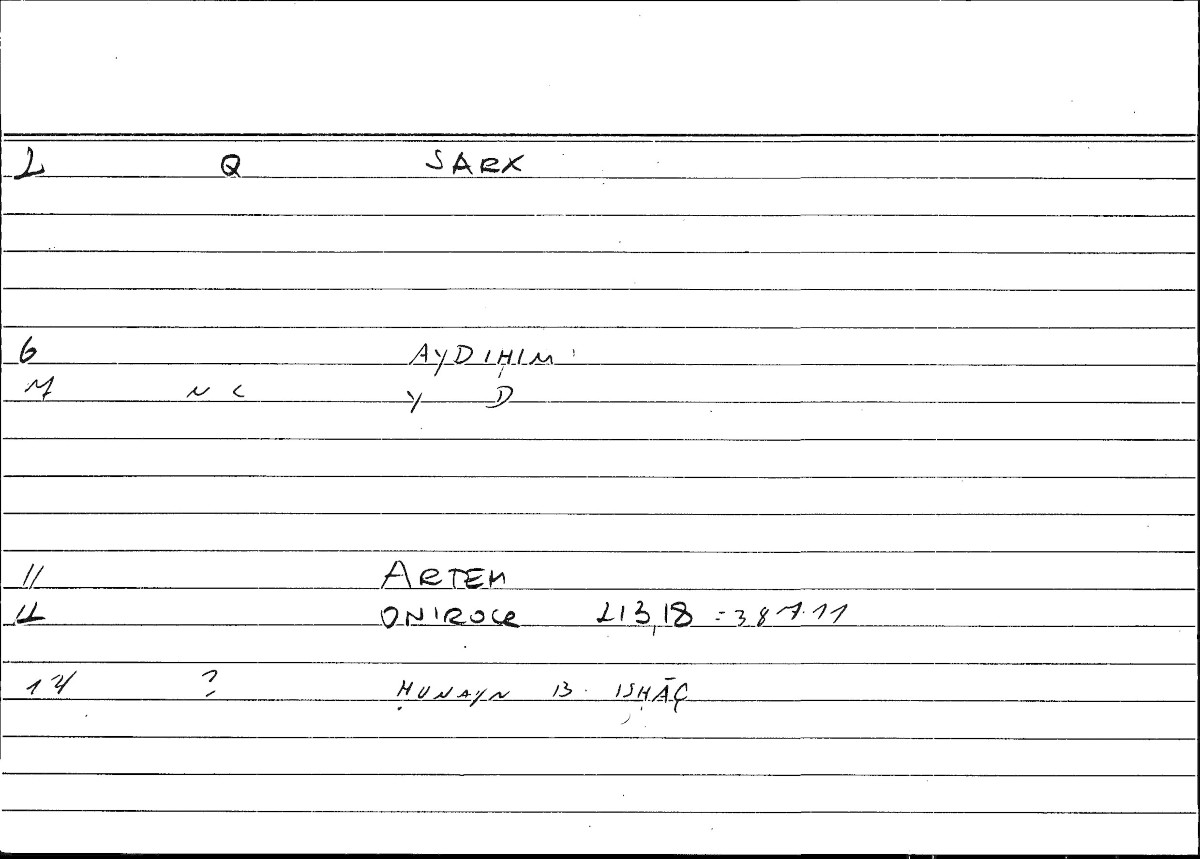 2 Q SARX
6 AYDIHIM
7 N C Y D
11 ARTEM
12 ONIROCR 213,18 = 387.11
14 ? ḤUNAYN B. ISḤĀQ